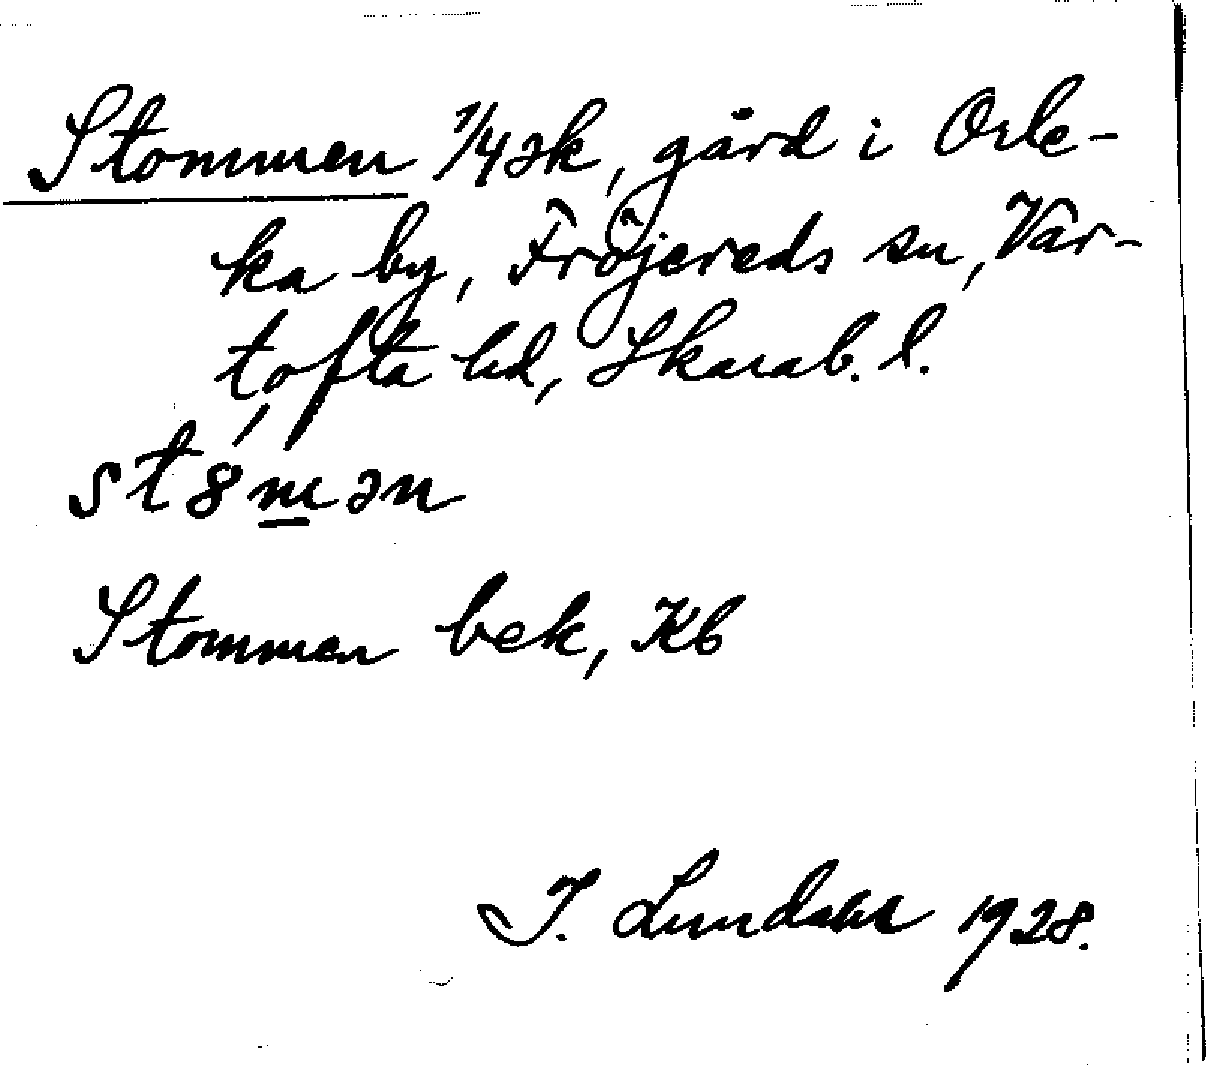 Stommen 1/4 sk, gård i Orle-
ka by, Fröjereds sn, Var-
tofta hd, Skarab. l.
st8́m̲ən
Stommen bek, Kb
I. Lundahl 1928.